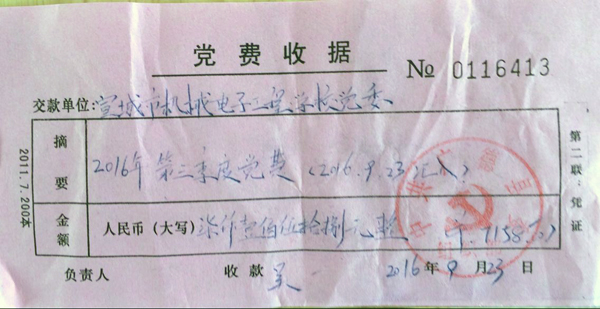 党费收据
№ 0116413
交款单位:宣城市机械电子工程学校党委
摘要
2016年第三季度党费(2016.9.23汇入)
金额
人民币(大写)柒仟壹佰伍拾捌元整
¥:7158.
负责人
收款 吴
2016年9月23日
第二联:凭证
2011.7.200本
中共